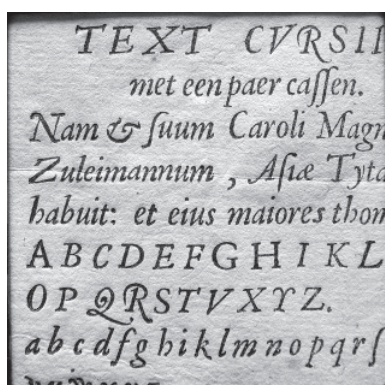 TEXT CVRSII
met een paer caſſen.
Nam & ſuum Caroli Magn
Zuleimannum, Aſiæ Tyta
habuit: et eius maiores thom
ABCDEFGHIKL
OPQRSTVXYZ.
abcdfghiklmnopqrſ